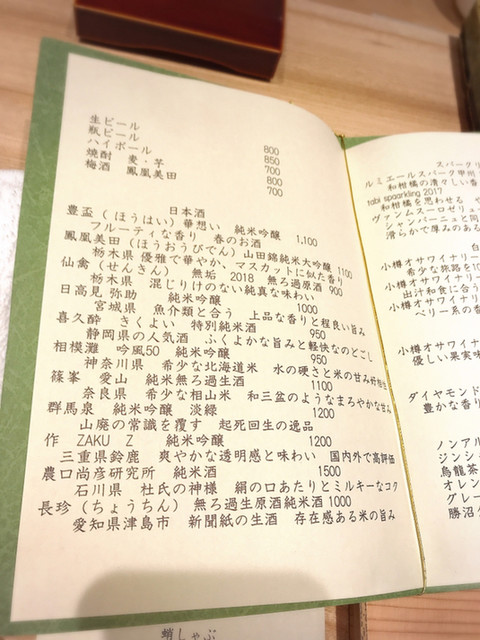 生ビール 800
瓶ビール 850
ハイボール 700
焼酎 麦・芋 800
梅酒 鳳凰美田 700
日本酒
豊盃(ほうはい)華想い 純米吟醸 1,100
フルーティな香り 春のお酒
鳳凰美田(ほうおうびでん)山田錦純米大吟醸 1100
栃木県 優雅で華やか、マスカットに似た香り
仙禽(せんきん) 無垢 2018 無ろ過原酒 900
栃木県 混じりけのない純真な味わい
日高見 弥助 純米吟醸 1000
宮城県 魚介類と合う 上品な香りと程良い旨み
喜久酔 きくよい 特別純米酒 950
静岡県の人気酒 ふくよかな旨みと軽快なのどごし
相模灘 吟風50 純米吟醸 950
神奈川県 希少な北海道米 水の硬さと米の甘み好相性
篠峯 愛山 純米無ろ過生酒 1100
奈良県 希少な相山米 和三盆のようなまろやかな甘み
群馬泉 純米吟醸 淡緑 1200
山廃の常識を覆す 起死回生の逸品
作 ZAKU Z 純米吟醸 1200
三重県鈴鹿 爽やかな透明感と味わい 国内外で高評価
農口尚彦研究所 純米酒 1500
石川県 杜氏の神様 絹の口あたりとミルキーなコク
長珍(ちょうちん) 無ろ過生原酒純米酒 1000
愛知県津島市 新聞紙の生酒 存在感ある米の旨み
スパークリ
ルミエールスパーク甲州
和柑橘の清々しい香
tabi spaarkling 2017
和柑橘を思わせる や
ヴァンムスーロゼリュー
シャンパーニュと同
滑らかで厚みのある
白
小樽オサワイナリー
希少な旅路を10
小樽オサワイナリー
出汁和食に合う
小樽オサワイナリー
ベリー系の香
小樽オサワイナリー
優しい果実味
ダイヤモンド
豊かな香り
ノンアル
ジンジャ
烏龍茶
オレン
グレー
勝沼
蛸しゃぶ